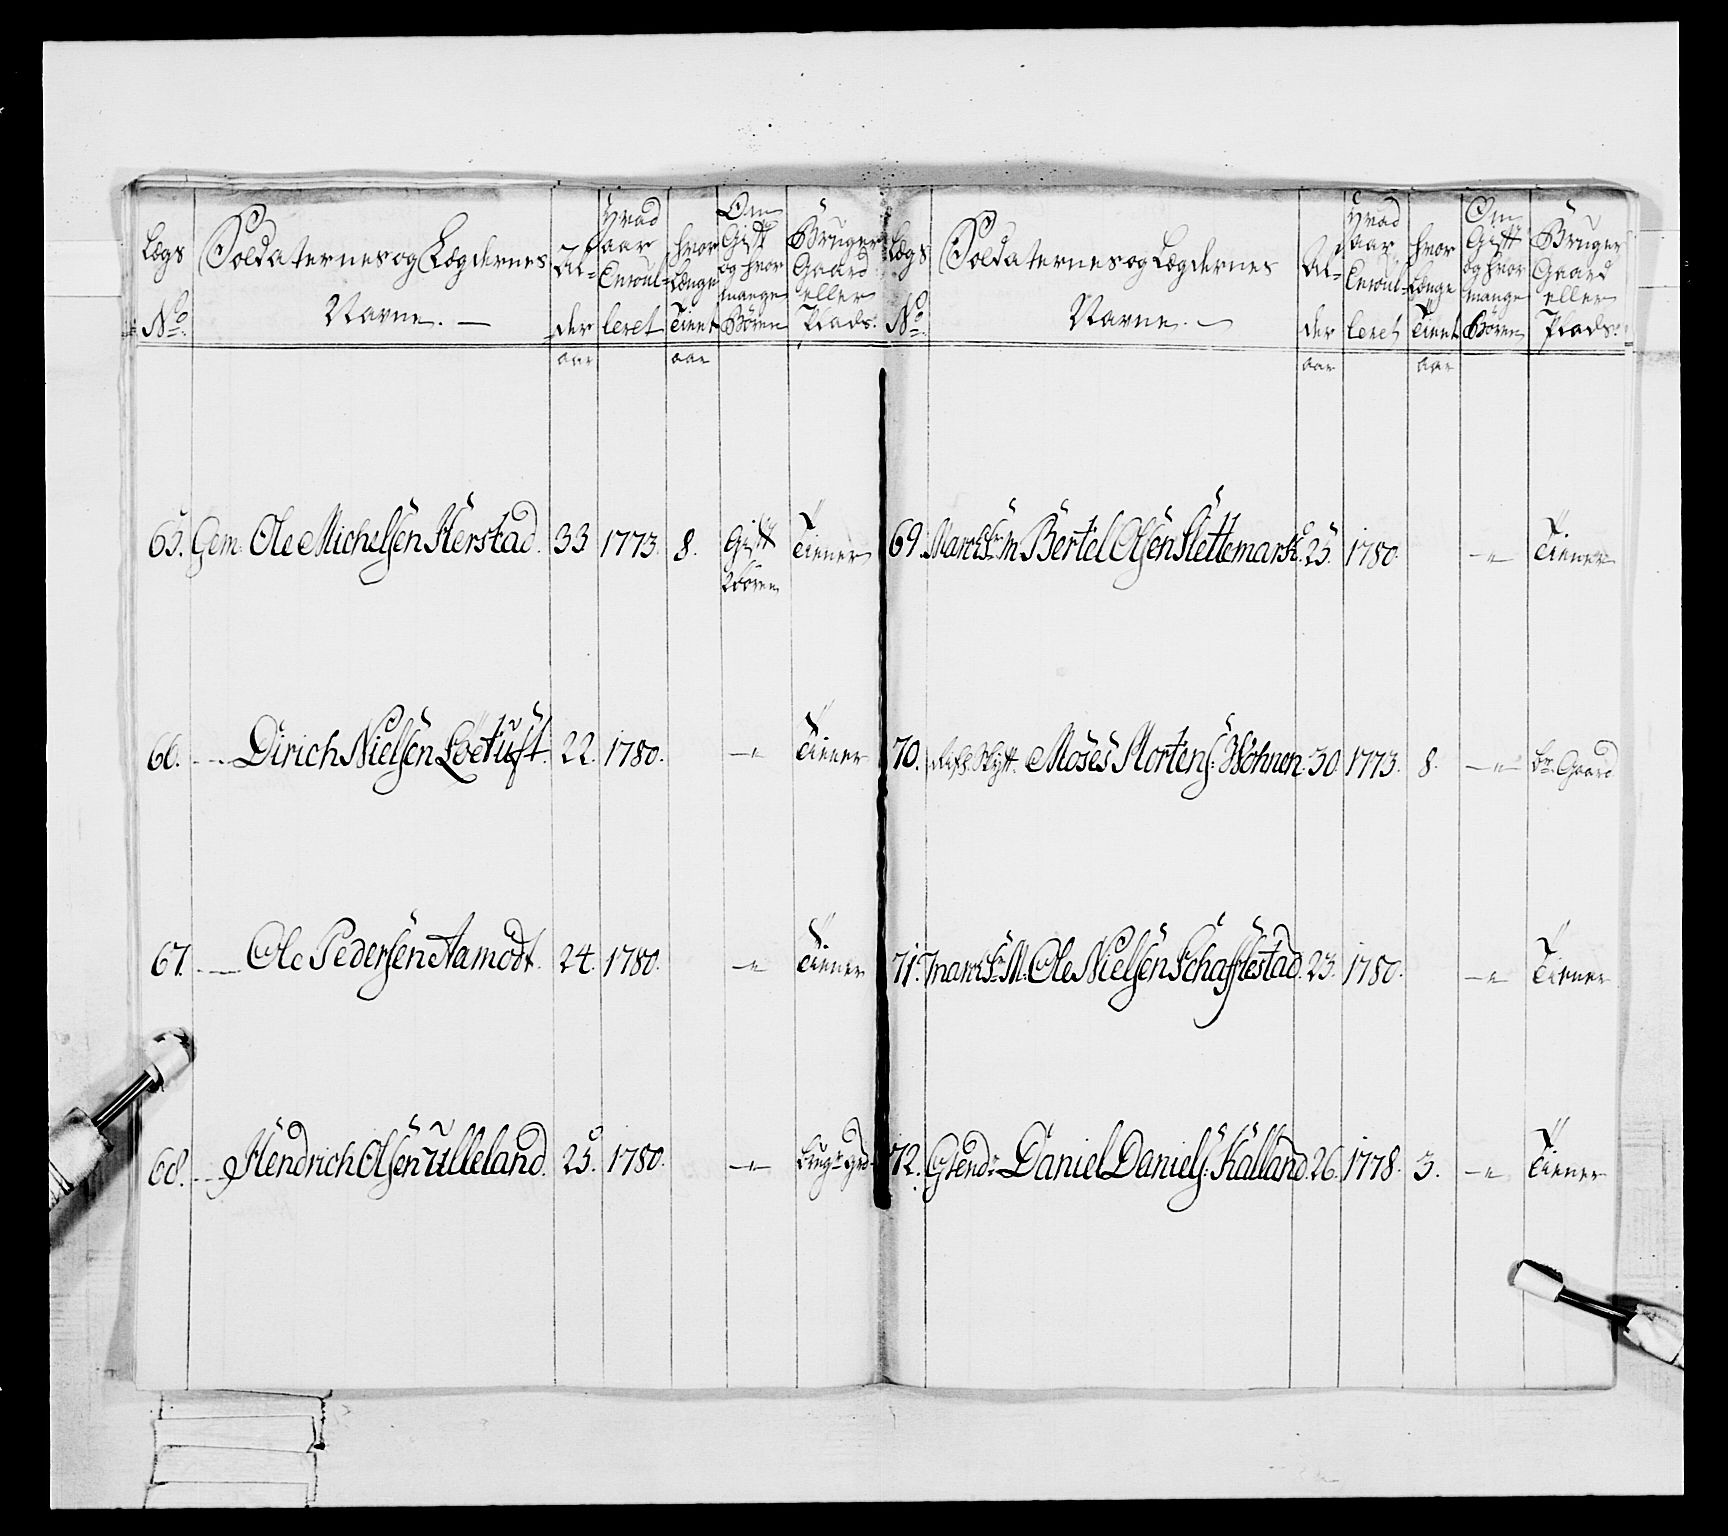 Lægs
No.
Soldaternes og Lægdernes
Navne.
Al-
der
aar
Hvad
aar
Enroul-
leret
hvor
længe
Tient
aar
Om
Gift
og hvor
mange
Børen
Bruger
Gaard
eller
Plads.
65. Gem. Ole Michelsen Herstad. 33 1773. 8. Gift Tiener
2 børen
66. — Dirich Nielsen Loetuft. 22. 1780. — Tiener
67. — Ole Pedersen Aamodt. 24. 1780. — Tiener
68. — Hendrich Olsen Ulleland. 25. 1780. — brugr grd
Lægs
No.
Soldaternes og Lægdernes
Navne.
Al-
der
aar
Hvad
aar
Enroul-
leret
hvor
længe
Tient
aar
Om
Gift
og hvor
mange
Børen
Bruger
Gaard
eller
Plads.
69. Bertel Olsen Slettemark. 25. 1780. — Tiener
70. Moses Mortens: 30 1773. 8. — br. Gaard
71. Ole Nielsen Schafflestad. 23. 1780. — Tiener
72. Daniel Daniels: Kalland. 26. 1778. 3. — Tiener